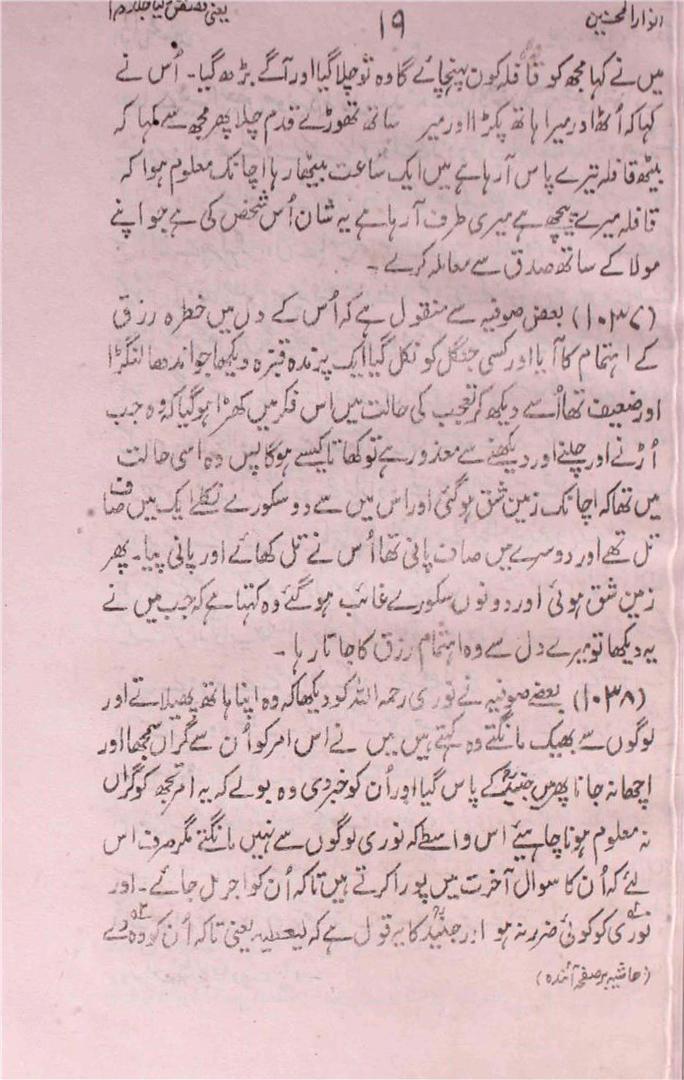 انوار المحسنین ۱۹ یعنی قصص
میں نے کہا مجھ کو قافلہ کون پہنچائے گا وہ تو چلا گیا اور آگے بڑھ گیا۔ اُس نے
کہا کہ اُٹھ اور میرا ہاتھ پکڑا اور میر ساتھ تھوڑے قدم چلا پھر مجھ سے کہا کہ
بیٹھ قافلہ تیرے پاس آ رہا ہے میں ایک ساعت بیٹھا رہا اچانک معلوم ہوا کہ
قافلہ میرے پیچھے ہے میری طرف آ رہا ہے یہ شان اُس شخص کی ہے جو اپنے
مولا کے ساتھ صدق سے معاملہ کرے۔
(۱۰۳۷) بعض صوفیہ سے منقول ہے کہ اُس کے دل میں خطرہ رزق
کے اہتمام کا آیا اور کسی جنگل کو نکل گیا ایک پرندہ قبّرہ دیکھا جو اندھا لنگڑا
اور ضعیف تھا اُسے دیکھ کر تعجب کی حالت میں اس فکر میں کھڑا ہو گیا کہ وہ جب
اُڑنے اور چلنے اور دیکھنے سے معذور ہے تو کھاتا کیسے ہوگا پس وہ اسی حالت
میں تھا کہ اچانک زمین شق ہو گئی اور اس میں سے دو سکورے نکلے ایک میں صاف
تل تھے اور دوسرے میں صاف پانی تھا اُس نے تل کھائے اور پانی پیا۔ پھر
زمین شق ہوئی اور دونوں سکورے غائب ہو گئے وہ کہتا ہے کہ جب میں نے
یہ دیکھا تو میرے دل سے وہ اہتمام رزق کا جاتا رہا۔
(۱۰۳۸) بعضے صوفیہ نے نوری رحمہ اللہ کو دیکھا کہ وہ اپنا ہاتھ پھیلاتے اور
لوگوں سے بھیک مانگتے وہ کہتے ہیں میں نے اس امر کو اُن سے گراں سمجھا اور
اچھا نہ جانا پھر میں جنیدؒ کے پاس گیا اور اُن کو خبر دی وہ بولے کہ یہ امر تجھ کو گراں
نہ معلوم ہونا چاہیئے اس واسطے کہ نوری لوگوں سے نہیں مانگتے مگر صرف اس
لئے کہ اُن کا سوال آخرت میں پورا کرتے ہیں تاکہ اُن کو اجر مل جائے۔ اور
نوری کو کوئی ضرر نہ ہو اور جنیدؒ کا یہ قول ہے کہ لیعطیہ یعنی تاکہ اُن کو وہ دے
(حاشیہ بر صفحہ آئندہ)